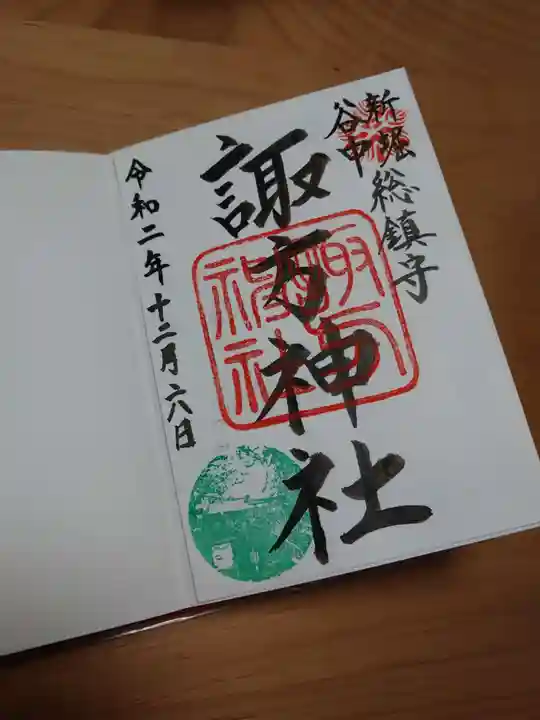 新堀
谷中
総鎮守
諏方神社
諏方
神社
令和二年十二月六日